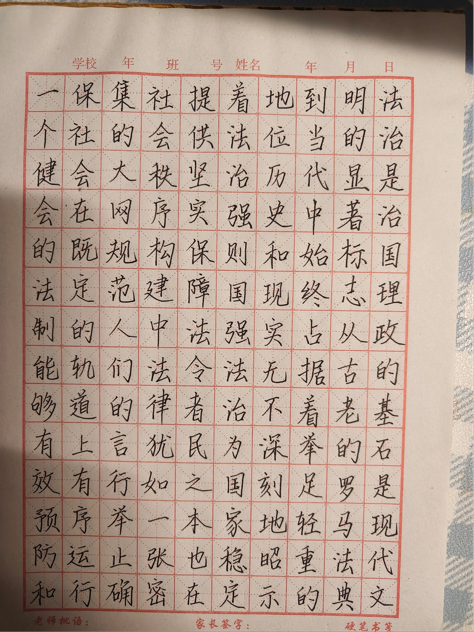 学校 年 班 号 姓名 年 月 日
法治是治国理政的基石是现代文
明的显著标志从古老的罗马法典
到当代中始终占据着举足轻重的
地位历史和现实无不深刻地昭示
着法治强则国强法治为国家稳定
提供坚实保障法令者民之本也在
社会秩序构建中法律犹如一张密
集的大网规范人们的言行举止确
保社会在既定的轨道上有序运行
一个健会的法制能够有效预防和
老师批语： 家长签字： 硬笔书